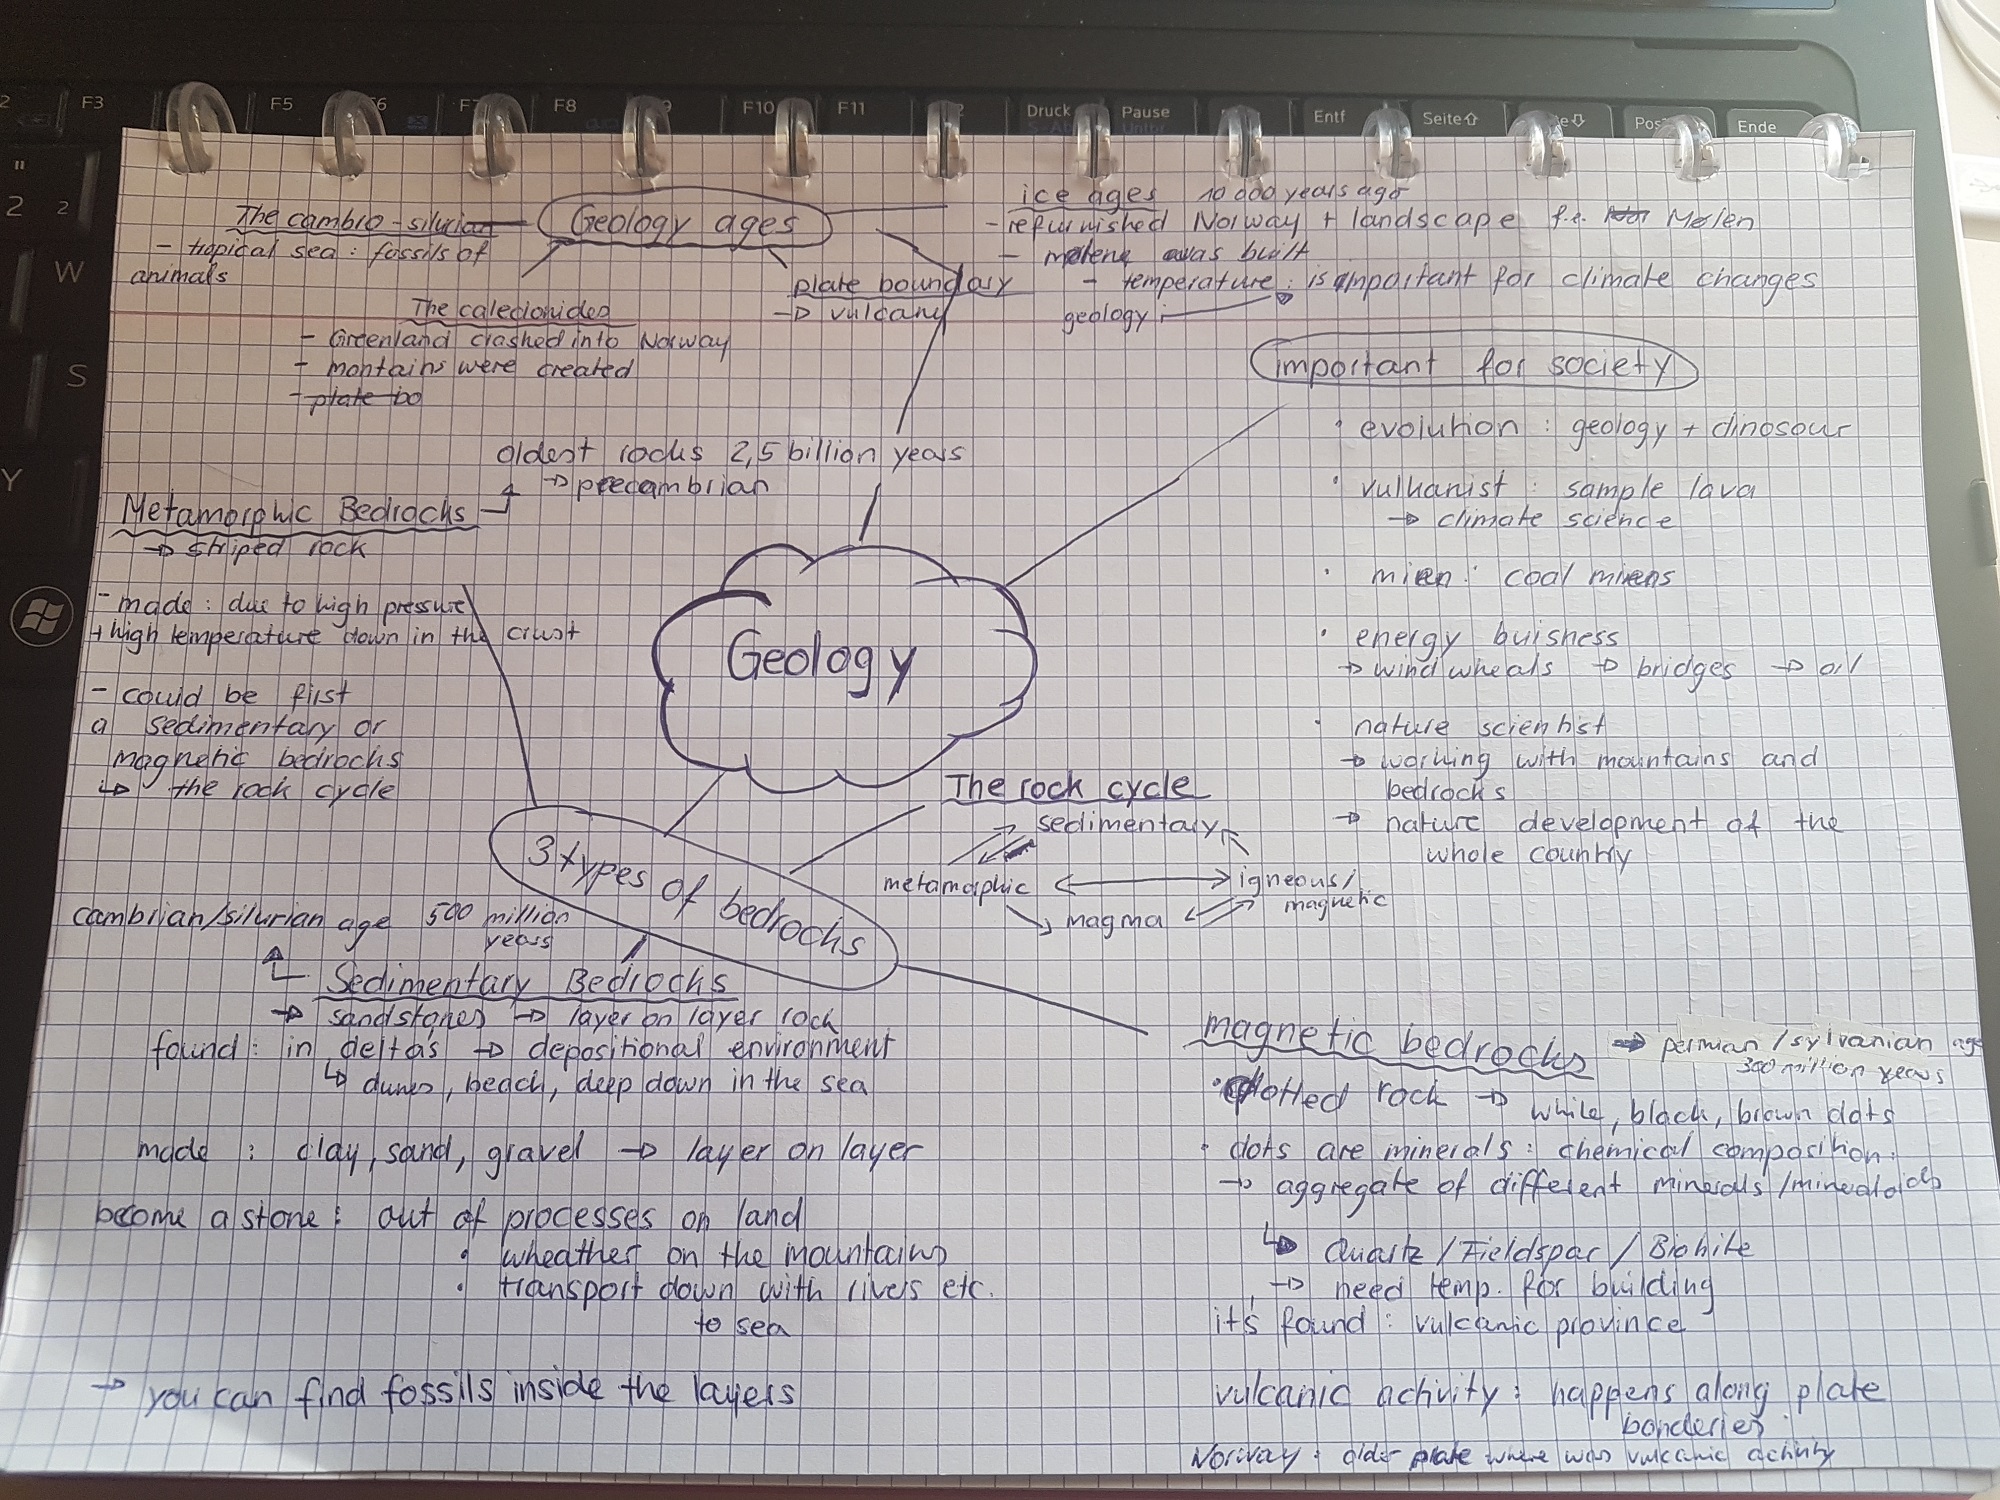 F3
F5
F8
F10
F11
Druck
Pause
Entf
Seite⇧
Ende
2
2
W
S
Y
Geology ages
The cambro-silurian
- tropical sea: fossils of
animals
The caledionides
- Greenland crashed into Norway
- montains were created
- plate bo
plate boundary
→ vulcany
ice ages 10 000 years ago
- refurnished Norway + landscape f.e. Mølen
- molene was built
- temperature: is important for climate changes
geology
oldest rocks 2,5 billion years
→ precambrian
Metamorphic Bedrocks
→ striped rock
- made: due to high pressure
+ high temperature down in the crust
- could be first
a sedimentary or
magnetic bedrocks
↳ the rock cycle
Geology
important for society
• evolution: geology + dinosour
• vulkanist: sample lava
→ climate science
• mien: coal miens
• energy buisness
→ wind wheals → bridges → oil
• nature scientist
→ working with mountains and
bedrocks
→ nature development of the
whole country
3 types of bedrocks
The rock cycle
sedimentary
metamorphic
igneous/
magnetic
magma
cambrian/silurian age 500 million
years
Sedimentary Bedrocks
→ sandstones → layer on layer rock
found: in delta's → depositional environment
↳ dunes, beach, deep down in the sea
made: clay, sand, gravel → layer on layer
become a stone: out of processes on land
• wheather on the mountains
• transport down with rivers etc.
to sea
→ you can find fossils inside the layers
magnetic bedrocks → permian/sylvanian age
300 million years
• dotted rock → while, black, brown dots
• dots are minerals: chemical composition.
→ aggregate of different minerals/mineraloids
↳ Quartz/Fieldspar/Biohite
→ need temp. for building
it's found: vulcanic province
vulcanic activity: happens along plate
bonderies
Norway: older plate where was vulcanic activity